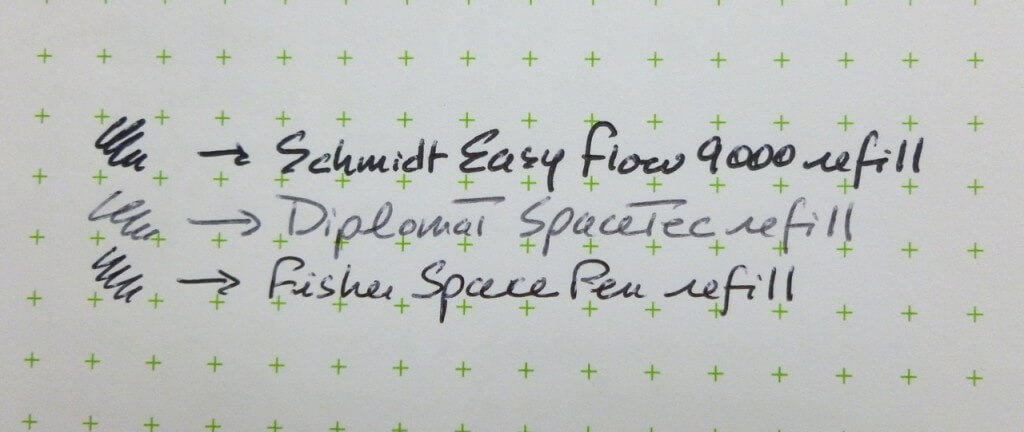 → Schmidt Easy Flow 9000 refill
→ Diplomat SpaceTec refill
→ Fisher Space Pen refill